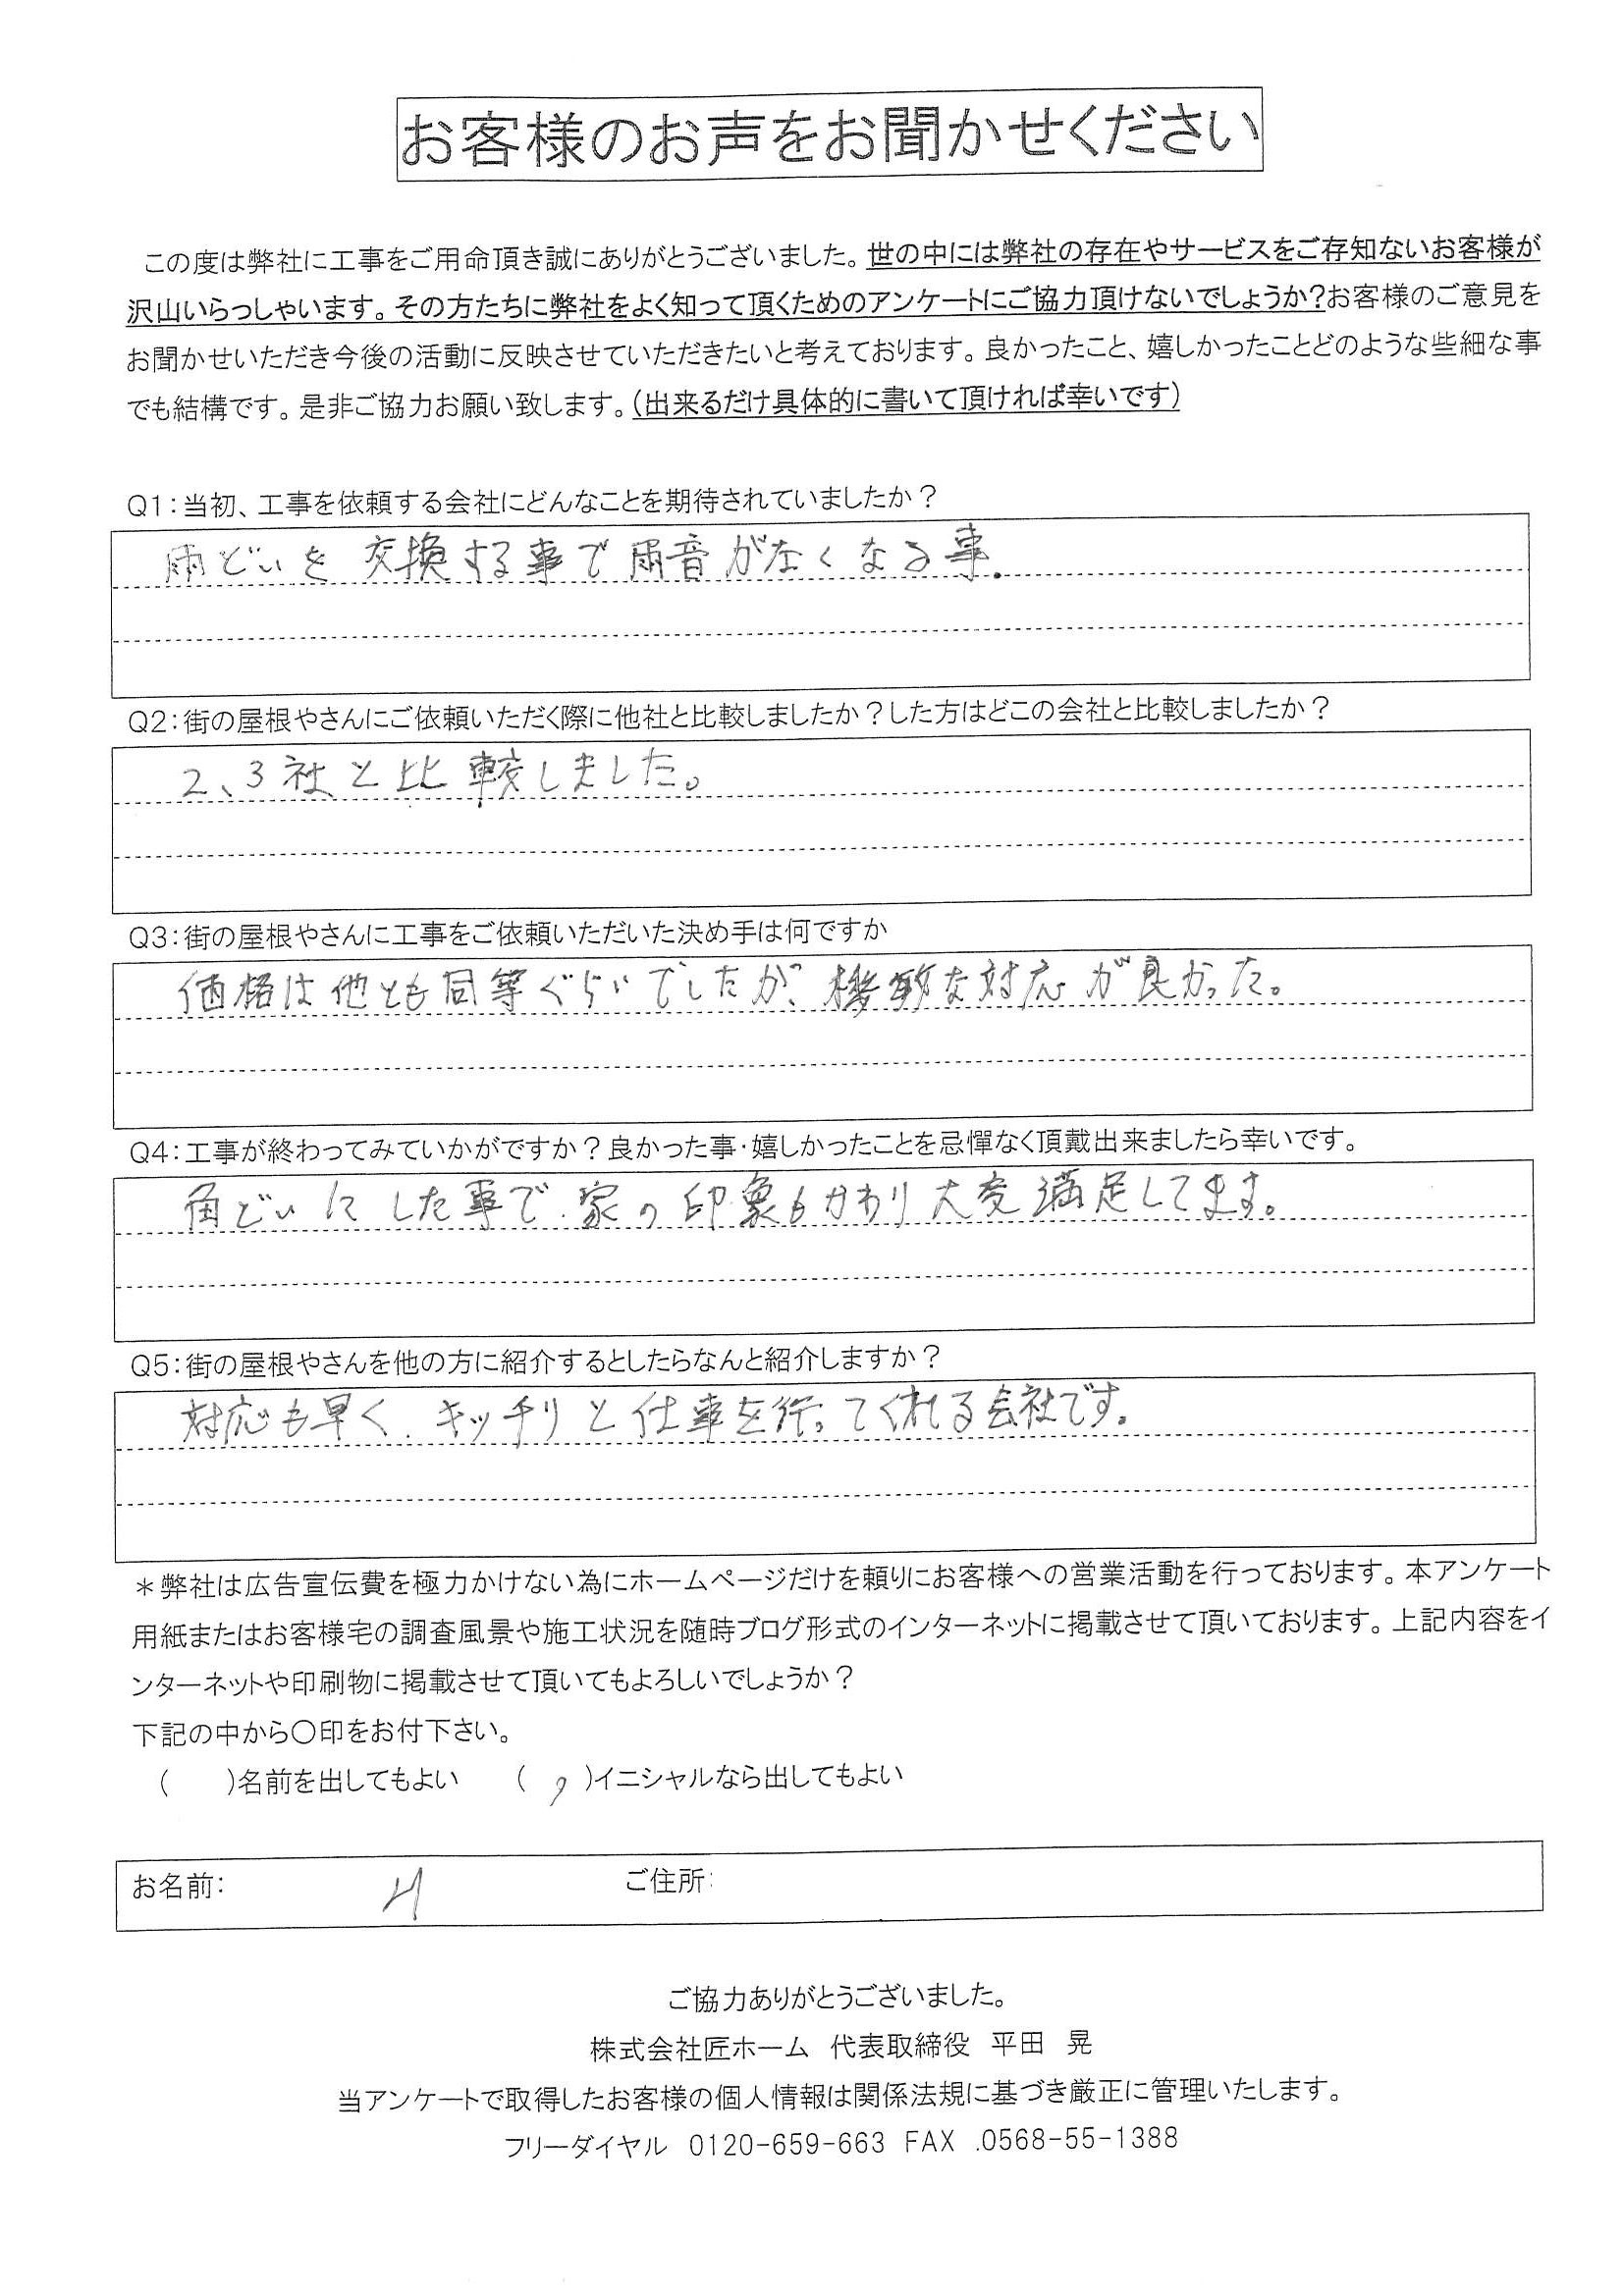 お客様のお声をお聞かせください
この度は弊社に工事をご用命頂き誠にありがとうございました。世の中には弊社の存在やサービスをご存知ないお客様が
沢山いらっしゃいます。その方たちに弊社をよく知って頂くためのアンケートにご協力頂けないでしょうか?お客様のご意見を
お聞かせいただき今後の活動に反映させていただきたいと考えております。良かったこと、嬉しかったことどのような些細な事
でも結構です。是非ご協力お願い致します。(出来るだけ具体的に書いて頂ければ幸いです)
Q1:当初、工事を依頼する会社にどんなことを期待されていましたか？
雨どいを交換する事で雨音がなくなる事.
Q2:街の屋根やさんにご依頼いただく際に他社と比較しましたか？した方はどこの会社と比較しましたか？
2、3社と比較しました。
Q3:街の屋根やさんに工事をご依頼いただいた決め手は何ですか
価格は他とも同等ぐらいでしたが、機敏な対応が良かった。
Q4:工事が終わってみていかがですか？良かった事・嬉しかったことを忌憚なく頂戴出来ましたら幸いです。
角どいにした事で、家の印象もかわり大変満足してます。
Q5:街の屋根やさんを他の方に紹介するとしたらなんと紹介しますか？
対応も早く、キッチリと仕事を行ってくれる会社です。
＊弊社は広告宣伝費を極力かけない為にホームページだけを頼りにお客様への営業活動を行っております。本アンケート
用紙またはお客様宅の調査風景や施工状況を随時ブログ形式のインターネットに掲載させて頂いております。上記内容をイ
ンターネットや印刷物に掲載させて頂いてもよろしいでしょうか？
下記の中から〇印をお付下さい。
(　　)名前を出してもよい　　(　　)イニシャルなら出してもよい
お名前:　H　ご住所:
ご協力ありがとうございました。
株式会社匠ホーム　代表取締役　平田　晃
当アンケートで取得したお客様の個人情報は関係法規に基づき厳正に管理いたします。
フリーダイヤル　0120-659-663　FAX .0568-55-1388